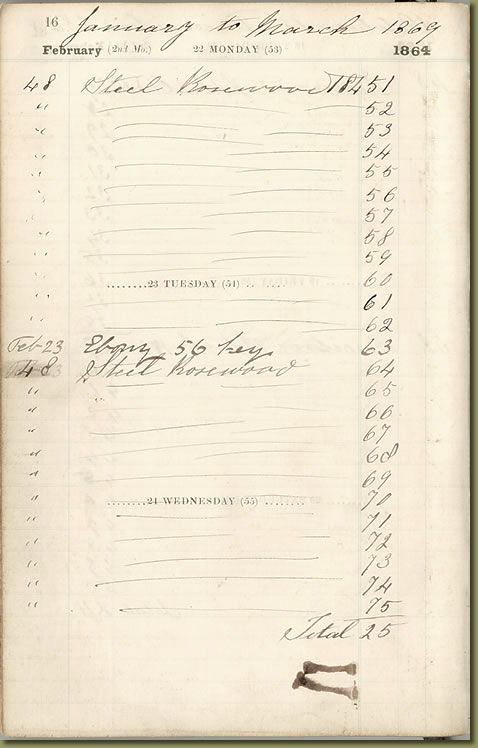 16 January to March 1869
February (2nd Mo.) 22 MONDAY (53) 1864
48 Steel Rosewood 18451
" 52
" 53
" 54
" 55
" 56
" 57
" 58
" 59
........23 TUESDAY (54) ........ 60
" 61
" 62
Feb 23 Ebony 56 key 63
48 Steel Rosewood 64
" 65
" 66
" 67
" 68
" 69
" ........24 WEDNESDAY (55) ........ 70
" 71
" 72
" 73
" 74
" 75
Total 25